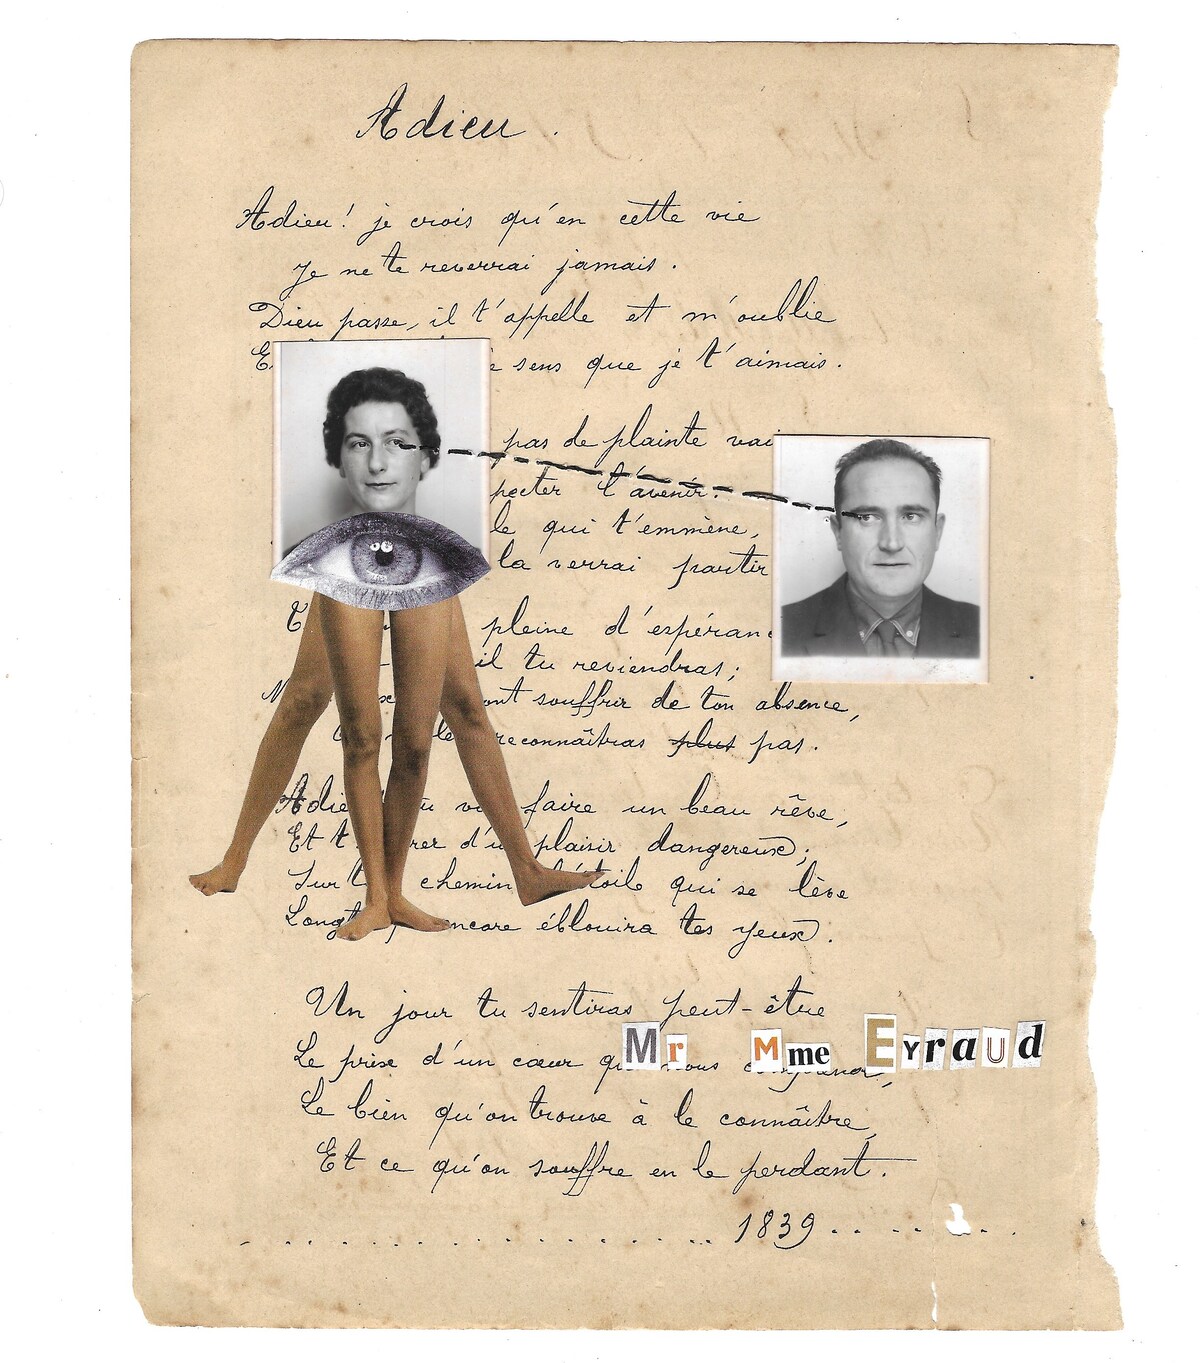 Adieu.
Adieu! je crois qu'en cette vie
Je ne te reverrai jamais.
Dieu passe, il t'appelle et m'oublie
E sens que je t'aimais.
pas de plainte vai
pecter l'avenir.
le qui t'emmène,
la verrai partir
pleine d'espéran
il tu reviendras;
ont souffrir de ton absence,
le reconnaîtras plus pas.
Adie u v faire un beau rêve,
Et t rer d'u plaisir dangereux;
Sur t chemin l'étoile qui se lève
Longt encore éblouira tes yeux.
Un jour tu sentiras peut-être
Le prix d'un cœur qu nous
Mr Mme Eyraud
Le bien qu'on trouve à le connaître,
Et ce qu'on souffre en le perdant.
1839